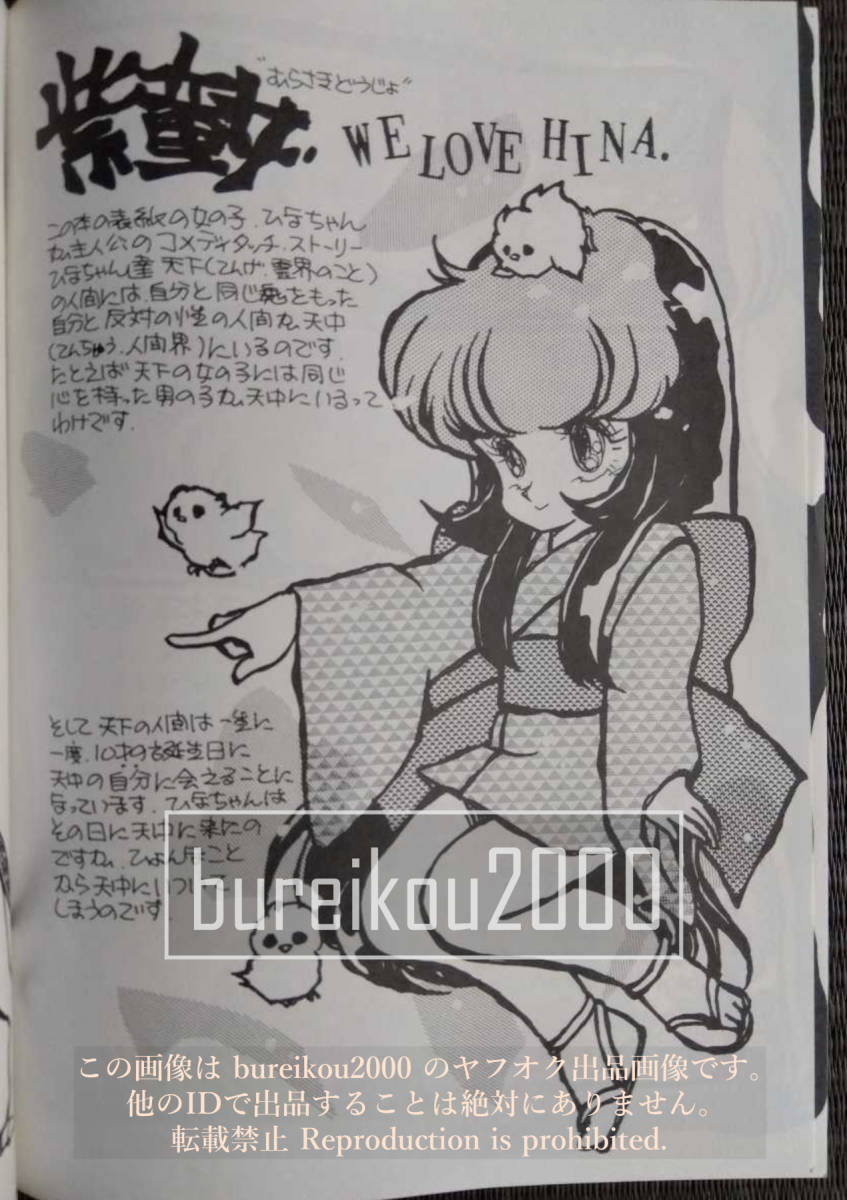 紫童女
"むらさきどうじょ"
WE LOVE HINA.
この本の表紙の女の子.ひなちゃん
が主人公のコメディタッチ.ストーリー
ひなちゃん達 天下(てんげ.霊界のこと)
の人間には.自分と同じ魂をもった
自分と反対の性の人間が天中
(てんちゅう.人間界)にいるのです.
たとえば天下の女の子には同じ
心を持った男の子が天中にいるって
わけです.
そして天下の人間は一生に
一度.10才の誕生日に
天中の自分に会えることに
なっています.ひなちゃんは
その日に天中に来たの
ですが.ひょんなこと
から天中にいついて
しまうのです.
bureikou2000
この画像は bureikou2000 のヤフオク出品画像です。
他のIDで出品することは絶対にありません。
転載禁止 Reproduction is prohibited.